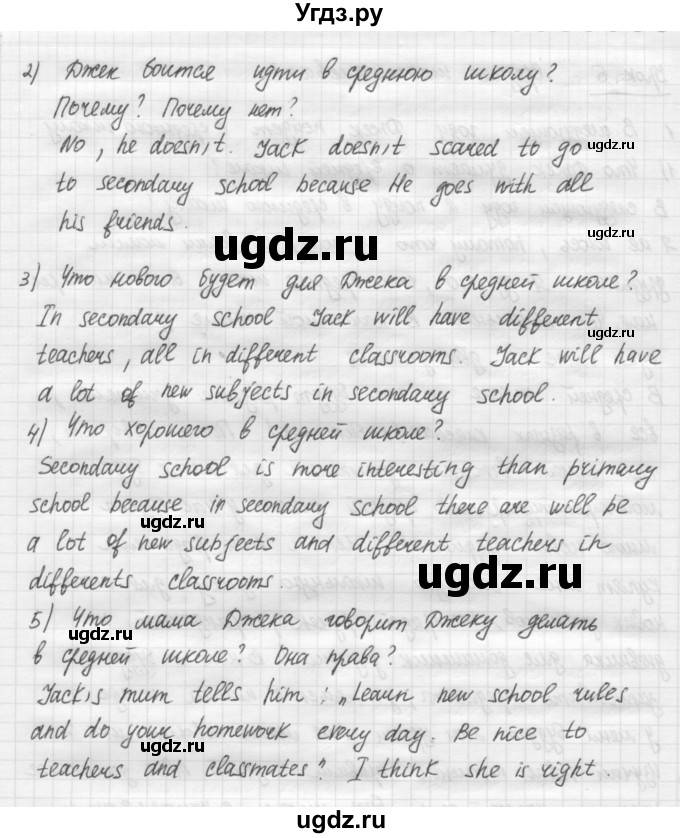 Угдз.ру
2) Джек боится идти в среднюю школу?
Почему? Почему нет?
No, he doesn,t. Jack doesn,t scared to go
ugdz.ru
to secondary school because He goes with all
his friends.
ugdz.ru
ugdz.ru
3) Что нового будет для Джека в средней школе?
In secondary school Jack will have different
ugdz.ru
teachers, all in different classrooms. Jack will have
a lot of new subjects in secondary school.
4) Что хорошего в средней школе?
Secondary school is more interesting than primary
school because in secondary school there are will be
ugdz.ru
a lot of new subjects and different teachers in
ugdz.ru
differents classrooms
5) Что мама Джека говорит Джеку делать
ugdz.ru
в средней школе? Она права?
Jack,s mum tells him: „Learn new school rules
and do your homework every day. Be nice to
ugdz.ru
teachers and classmates". I think she is right.
ugdz.ru